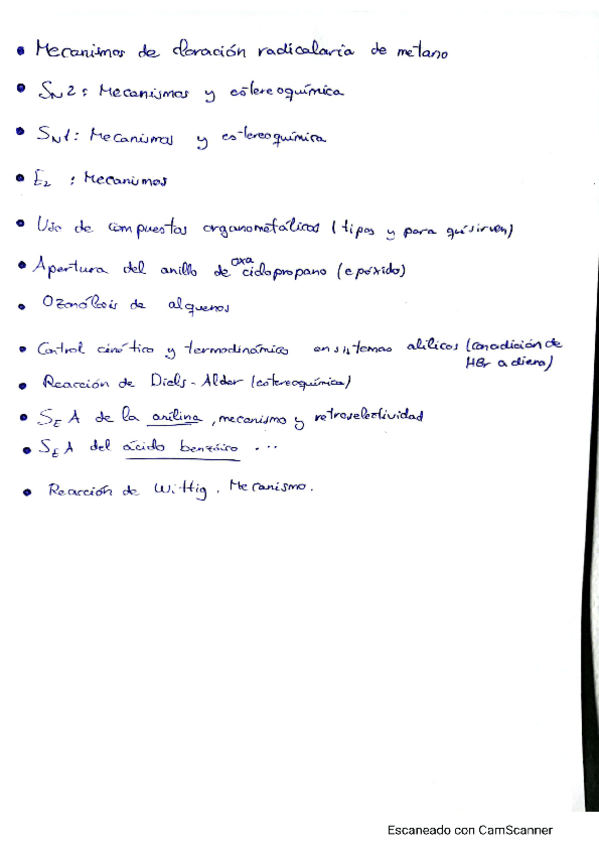 • Mecanismos de cloración radicalaria de metano
• SN2: Mecanismos y estereoquímica
• SN1: Mecanismos y estereoquímica
• E2 : Mecanismos
• Uso de compuestos organometálicos (tipos y para qué sirven)
• Apertura del anillo de oxaciclopropano (epóxido)
• Ozonólisis de alquenos
• Control cinético y termodinámico en sistemas alílicos (con adición de
HBr a dieno)
• Reacción de Diels-Alder (estereoquímica)
• SEA de la anilina, mecanismo y retroselectividad
• SEA del ácido benzóico ...
• Reacción de Wittig. Mecanismo.
Escaneado con CamScanner